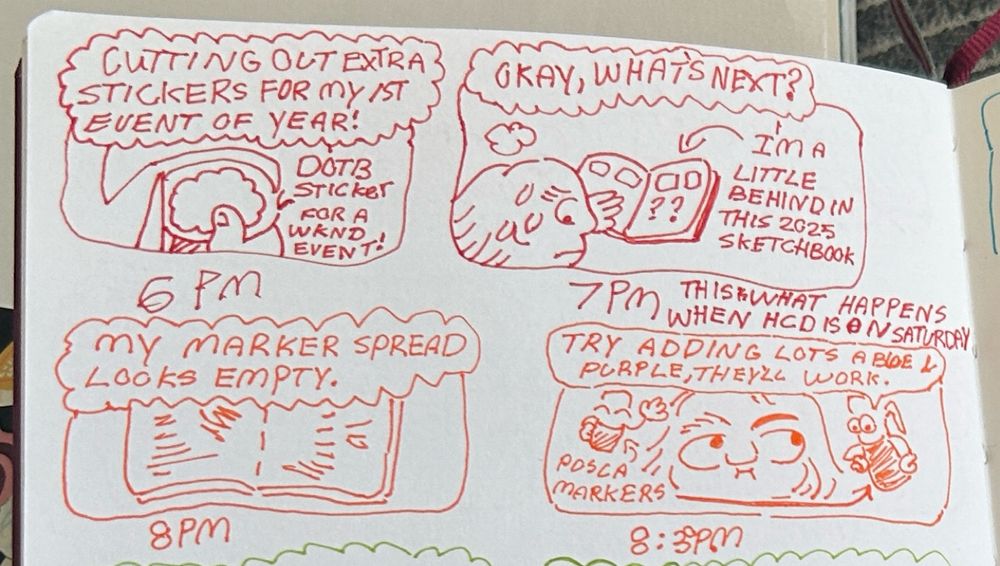 CUTTING OUT EXTRA
STICKERS FOR MY 1ST
EVENT OF YEAR!
DOTB
STICKER
FOR A
WKND
EVENT!
6 PM
OKAY, WHAT'S NEXT?
I'M A
LITTLE
BEHIND IN
THIS 2025
SKETCHBOOK
??
7 PM
THIS IS WHAT HAPPENS
WHEN HCD IS ON SATURDAY
MY MARKER SPREAD
LOOKS EMPTY.
8 PM
TRY ADDING LOTS A BLUE &
PURPLE, THEY'LL WORK.
POSCA
MARKERS
8:3PM